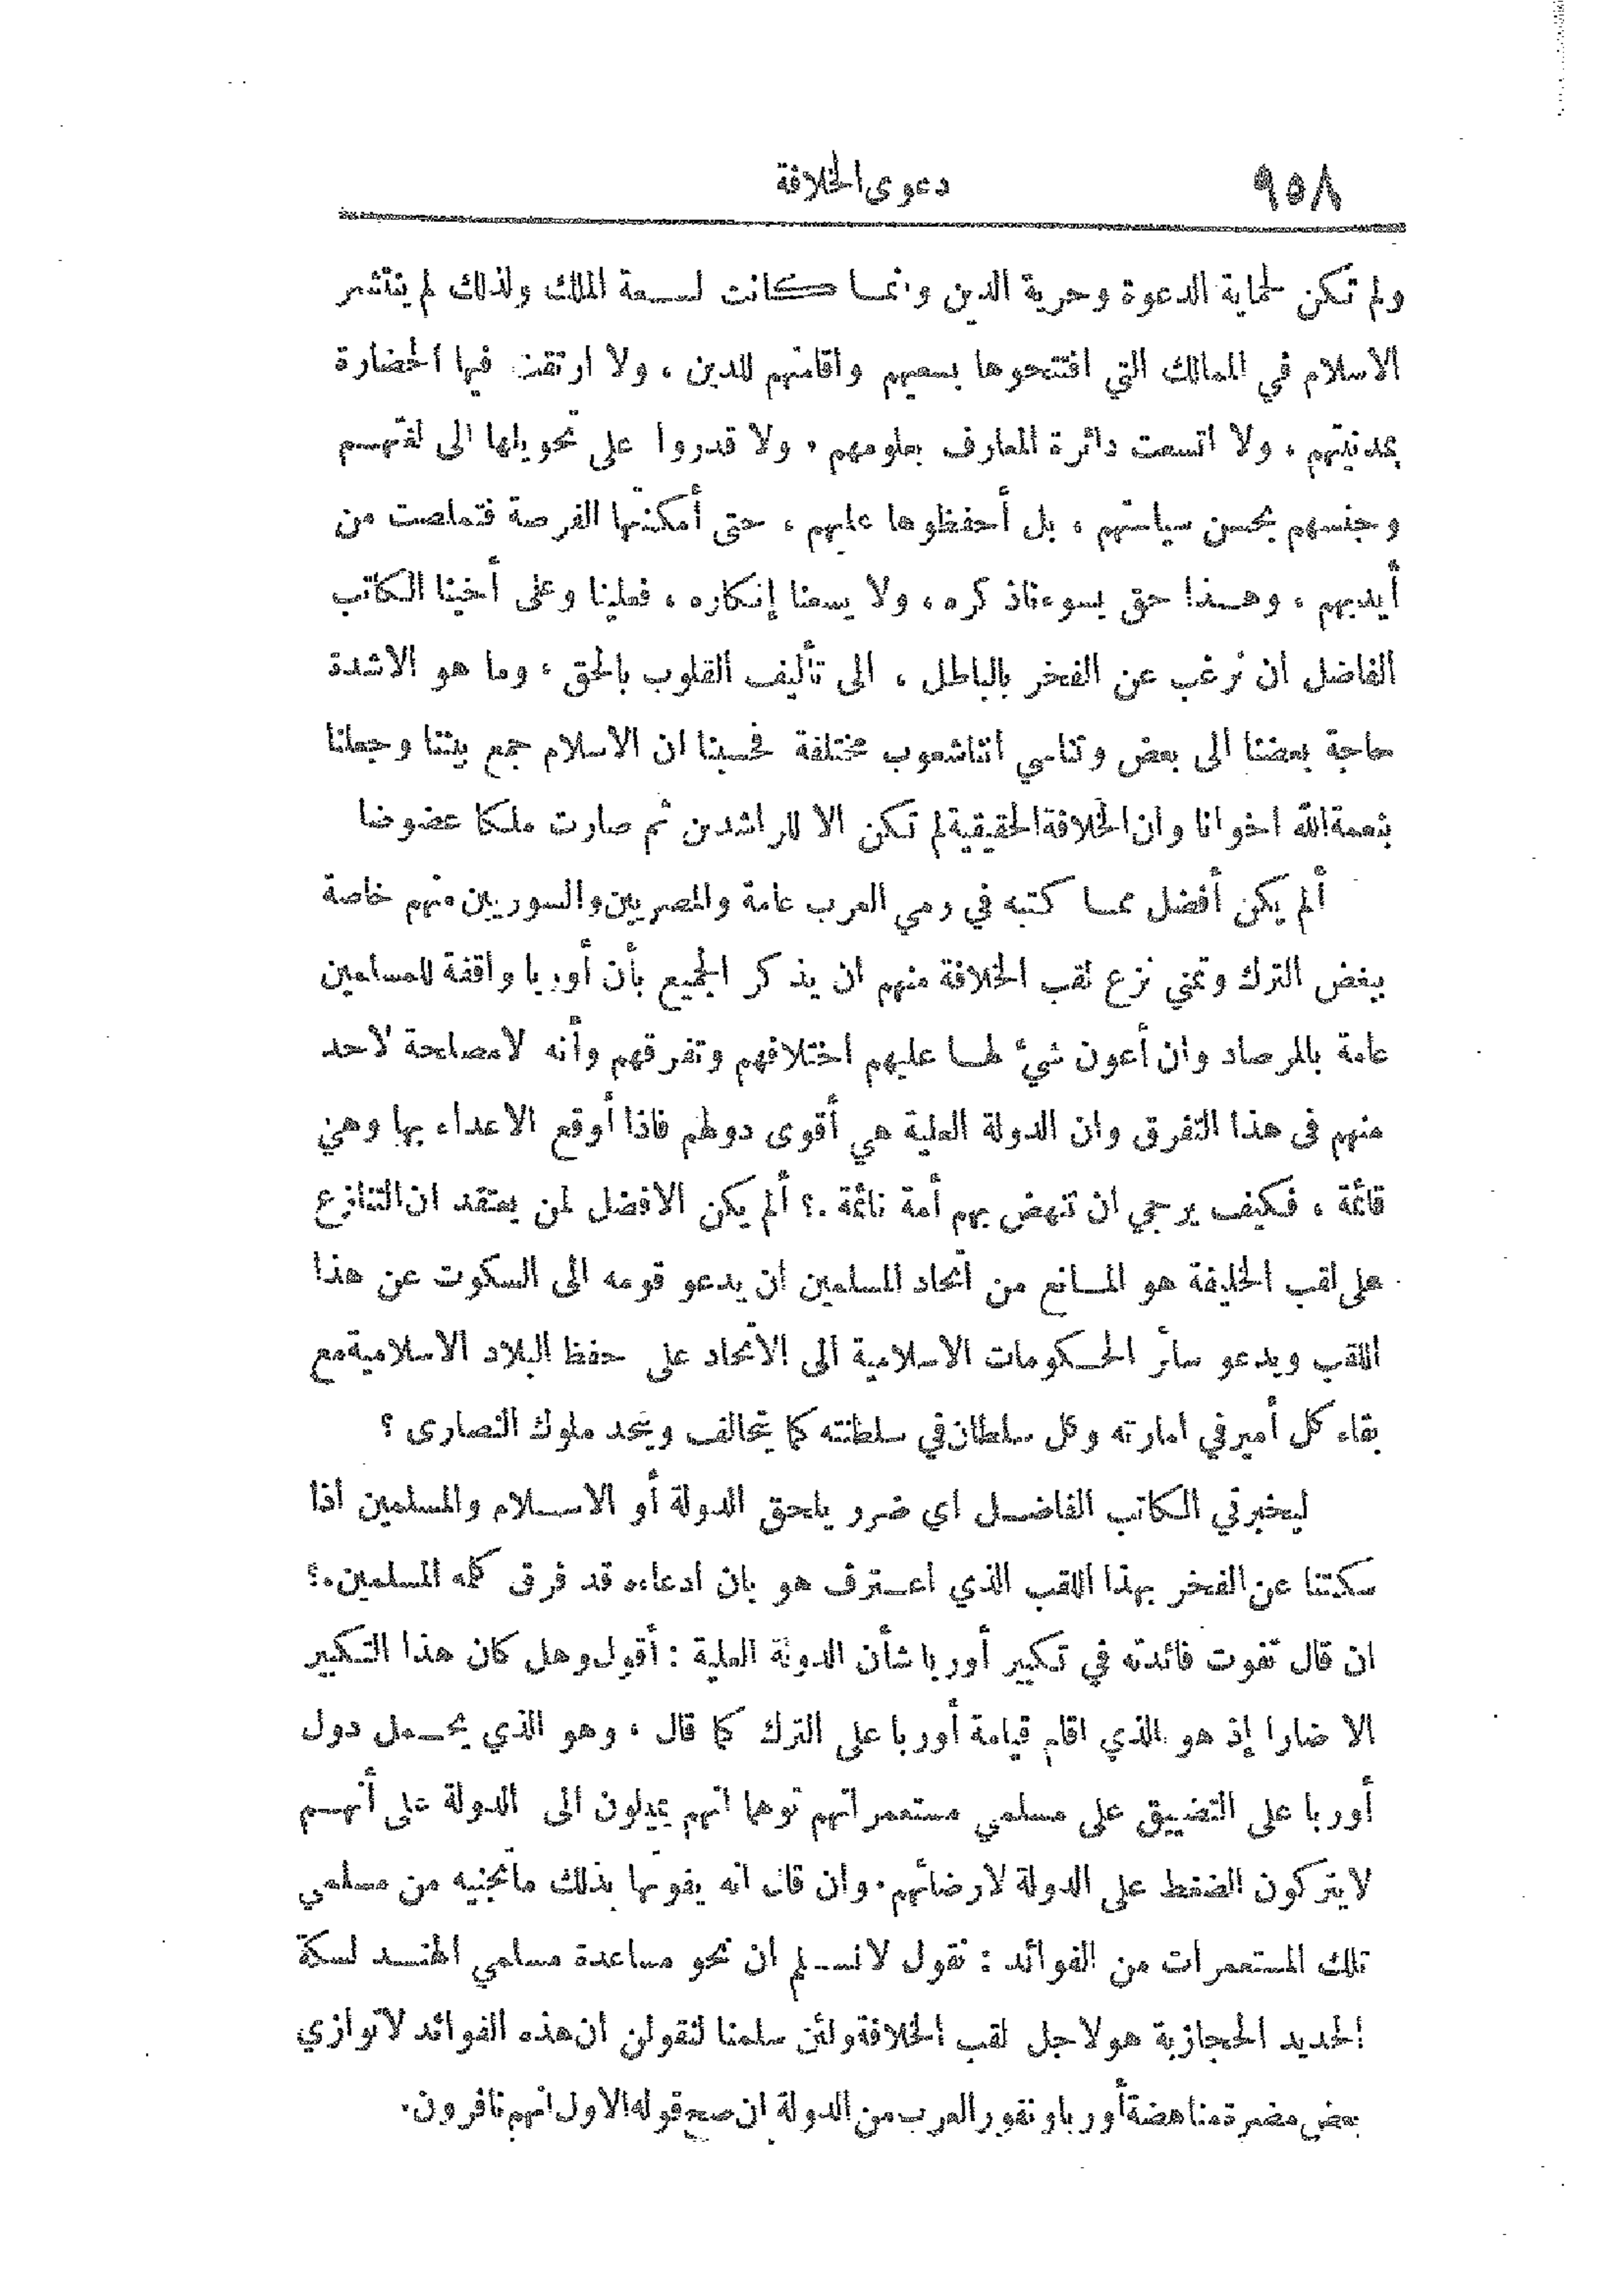 ٩٥٨
دعوى الخلافة
ولم تكن لحماية الدعوة وحرية الدين وانما كانت لسعة الملك ولذلك لم ينتشر
الاسلام في الممالك التي افتتحوها بسعيهم واقامتهم للدين ، ولا ارتقت فيها الحضارة
بمدنيتهم ، ولا اتسعت دائرة المعارف بعلومهم ، ولا قدروا على تحويلها الى لغتهم
وجنسهم بحسن سياستهم ، بل أحفظوها عليهم ، حتى أمكنتها الفرصة فتملصت من
أيديهم ، وهذا حق يسوءنا ذكره ، ولا يسعنا إنكاره ، فعلينا وعلى أخينا الكاتب
الفاضل ان نرغب عن الفخر بالباطل ، الى تأليف القلوب بالحق ، وما هو الا شدة
حاجة بعضنا الى بعض وتناسي اننا شعوب مختلفة فحسبنا ان الاسلام جمع بيننا وجعلنا
بنعمة الله اخوانا وان الخلافة الحقيقية لم تكن الا للراشدين ثم صارت ملكا عضوضا
ألم يكن أفضل مما كتبه في رمي العرب عامة والمصريين والسوريين منهم خاصة
ببغض الترك وتمني نزع لقب الخلافة منهم ان يذكر الجميع بأن أوربا واقفة للمسلمين
عامة بالمرصاد وان أعون شيء لها عليهم اختلافهم وتفرقهم وأنه لا مصلحة لاحد
منهم في هذا التفرق وان الدولة العلية هي أقوى دولهم فاذا أوقع الاعداء بها وهي
قائمة ، فكيف يرجى ان تنهض بهم أمة نائمة .؟ ألم يكن الافضل لمن يعتقد ان التنازع
على لقب الخليفة هو المانع من اتحاد المسلمين ان يدعو قومه الى السكوت عن هذا
اللقب ويدعو سائر الحكومات الاسلامية الى الاتحاد على حفظ البلاد الاسلامية مع
بقاء كل أمير في امارته وكل سلطان في سلطنته كما يتحالف ويتحد ملوك النصارى ؟
ليخبرني الكاتب الفاضل اي ضرر يلحق الدولة أو الاسلام والمسلمين اذا
سكتنا عن الفخر بهذا اللقب الذي اعترف هو بان ادعاءه قد فرق كلمة المسلمين.؟
ان قال تفوت فائدته في تكبير أوربا شأن الدولة العلية : أقول وهل كان هذا التكبير
الا ضارا إذ هو الذي اقام قيامة أوربا على الترك كما قال ، وهو الذي يحمل دول
أوربا على التضييق على مسلمي مستعمراتهم توهما انهم يميلون الى الدولة على أنهم
لا يتركون الضغط على الدولة لارضائهم. وان قال انه يفوتها بذلك ما تجنيه من مسلمي
تلك المستعمرات من الفوائد : نقول لا نسلم ان نحو مساعدة مسلمي الهند لسكة
الحديد الحجازية هو لاجل لقب الخلافة ولئن سلمنا لنقولن ان هذه الفوائد لا توازي
بعض مضرة مناهضة أوربا ونفور العرب من الدولة ان صح قوله الاول انهم نافرون.